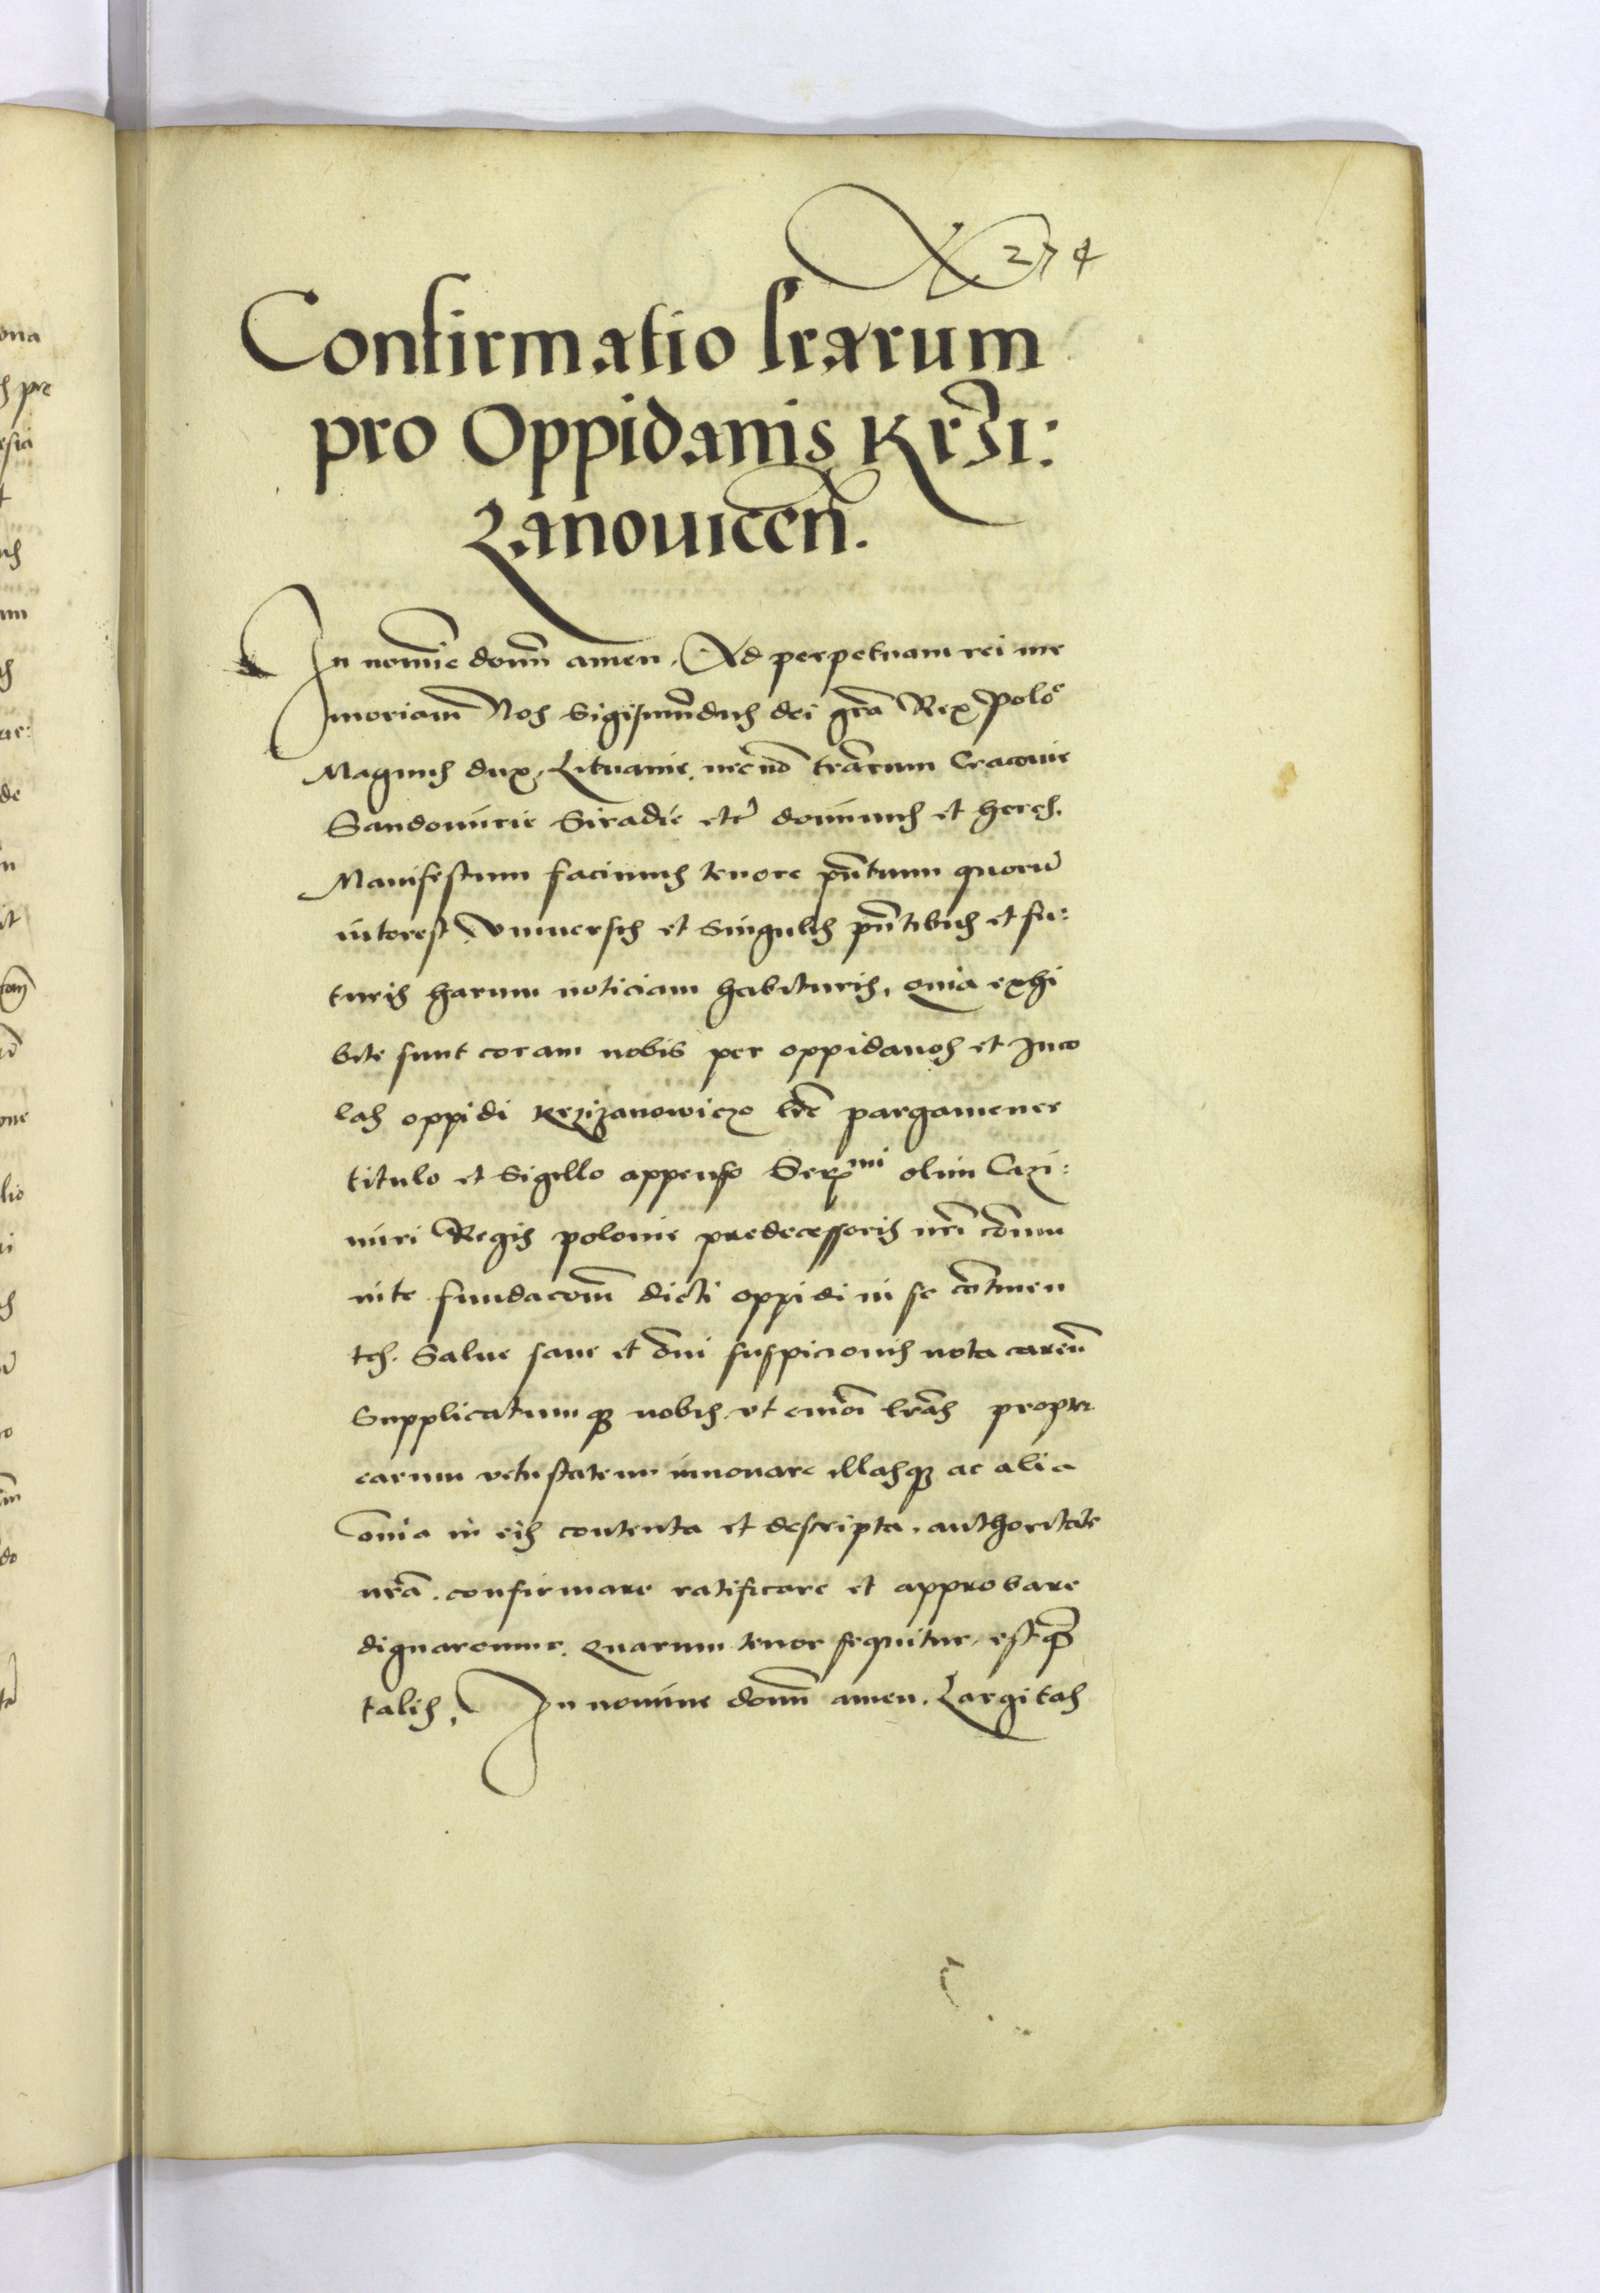 274
Confirmatio lrarum
pro Oppidanis Krzi:
zanouicen̄.
In nomīe domī amen. Ad perpetuam rei me
moriam Nos Sigismūdus dei grā Rex Polōe
Magnus dux Lituanie, necnō trārum Cracouie
Sandomirie Siradie etc̄ dominus et heres.
Manifestum facimus tenore pn̄tium quorū
interest, vniuersis et singulis pn̄tibus et fu:
turis harum noticiam habituris, quia exhi
bite sunt coram nobis per oppidanos et Inco
las oppidi Krzizanowicze lrē pargamenee
titulo et sigillo appenso Serᵐⁱ olim Cazi:
miri Regis polonie predecessoris nrī cōmu
nite fundacōm dicti oppidi in se cōtinen
tes. Salue sane et ōmi suspicionis nota caren̄
Supplicatumqꝫ nobis vt eiusmōi lrās propter
earum vetustatem innouare illasqꝫ ac alia
ōmia in eis contenta et descripta. authoritate
nrā. confirmare ratificare et approbare
dignaremur. quarum tenor sequitur, estqꝫ
talis, In nomine domī amen. Largitas